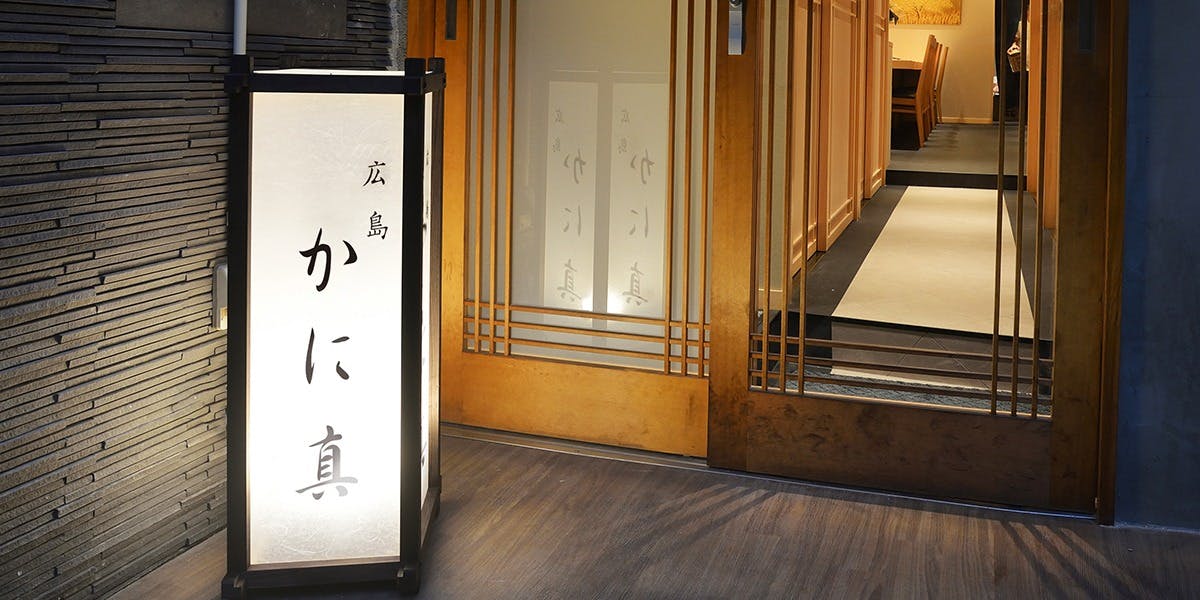 広島
かに真
広島
かに真
広島
かに真